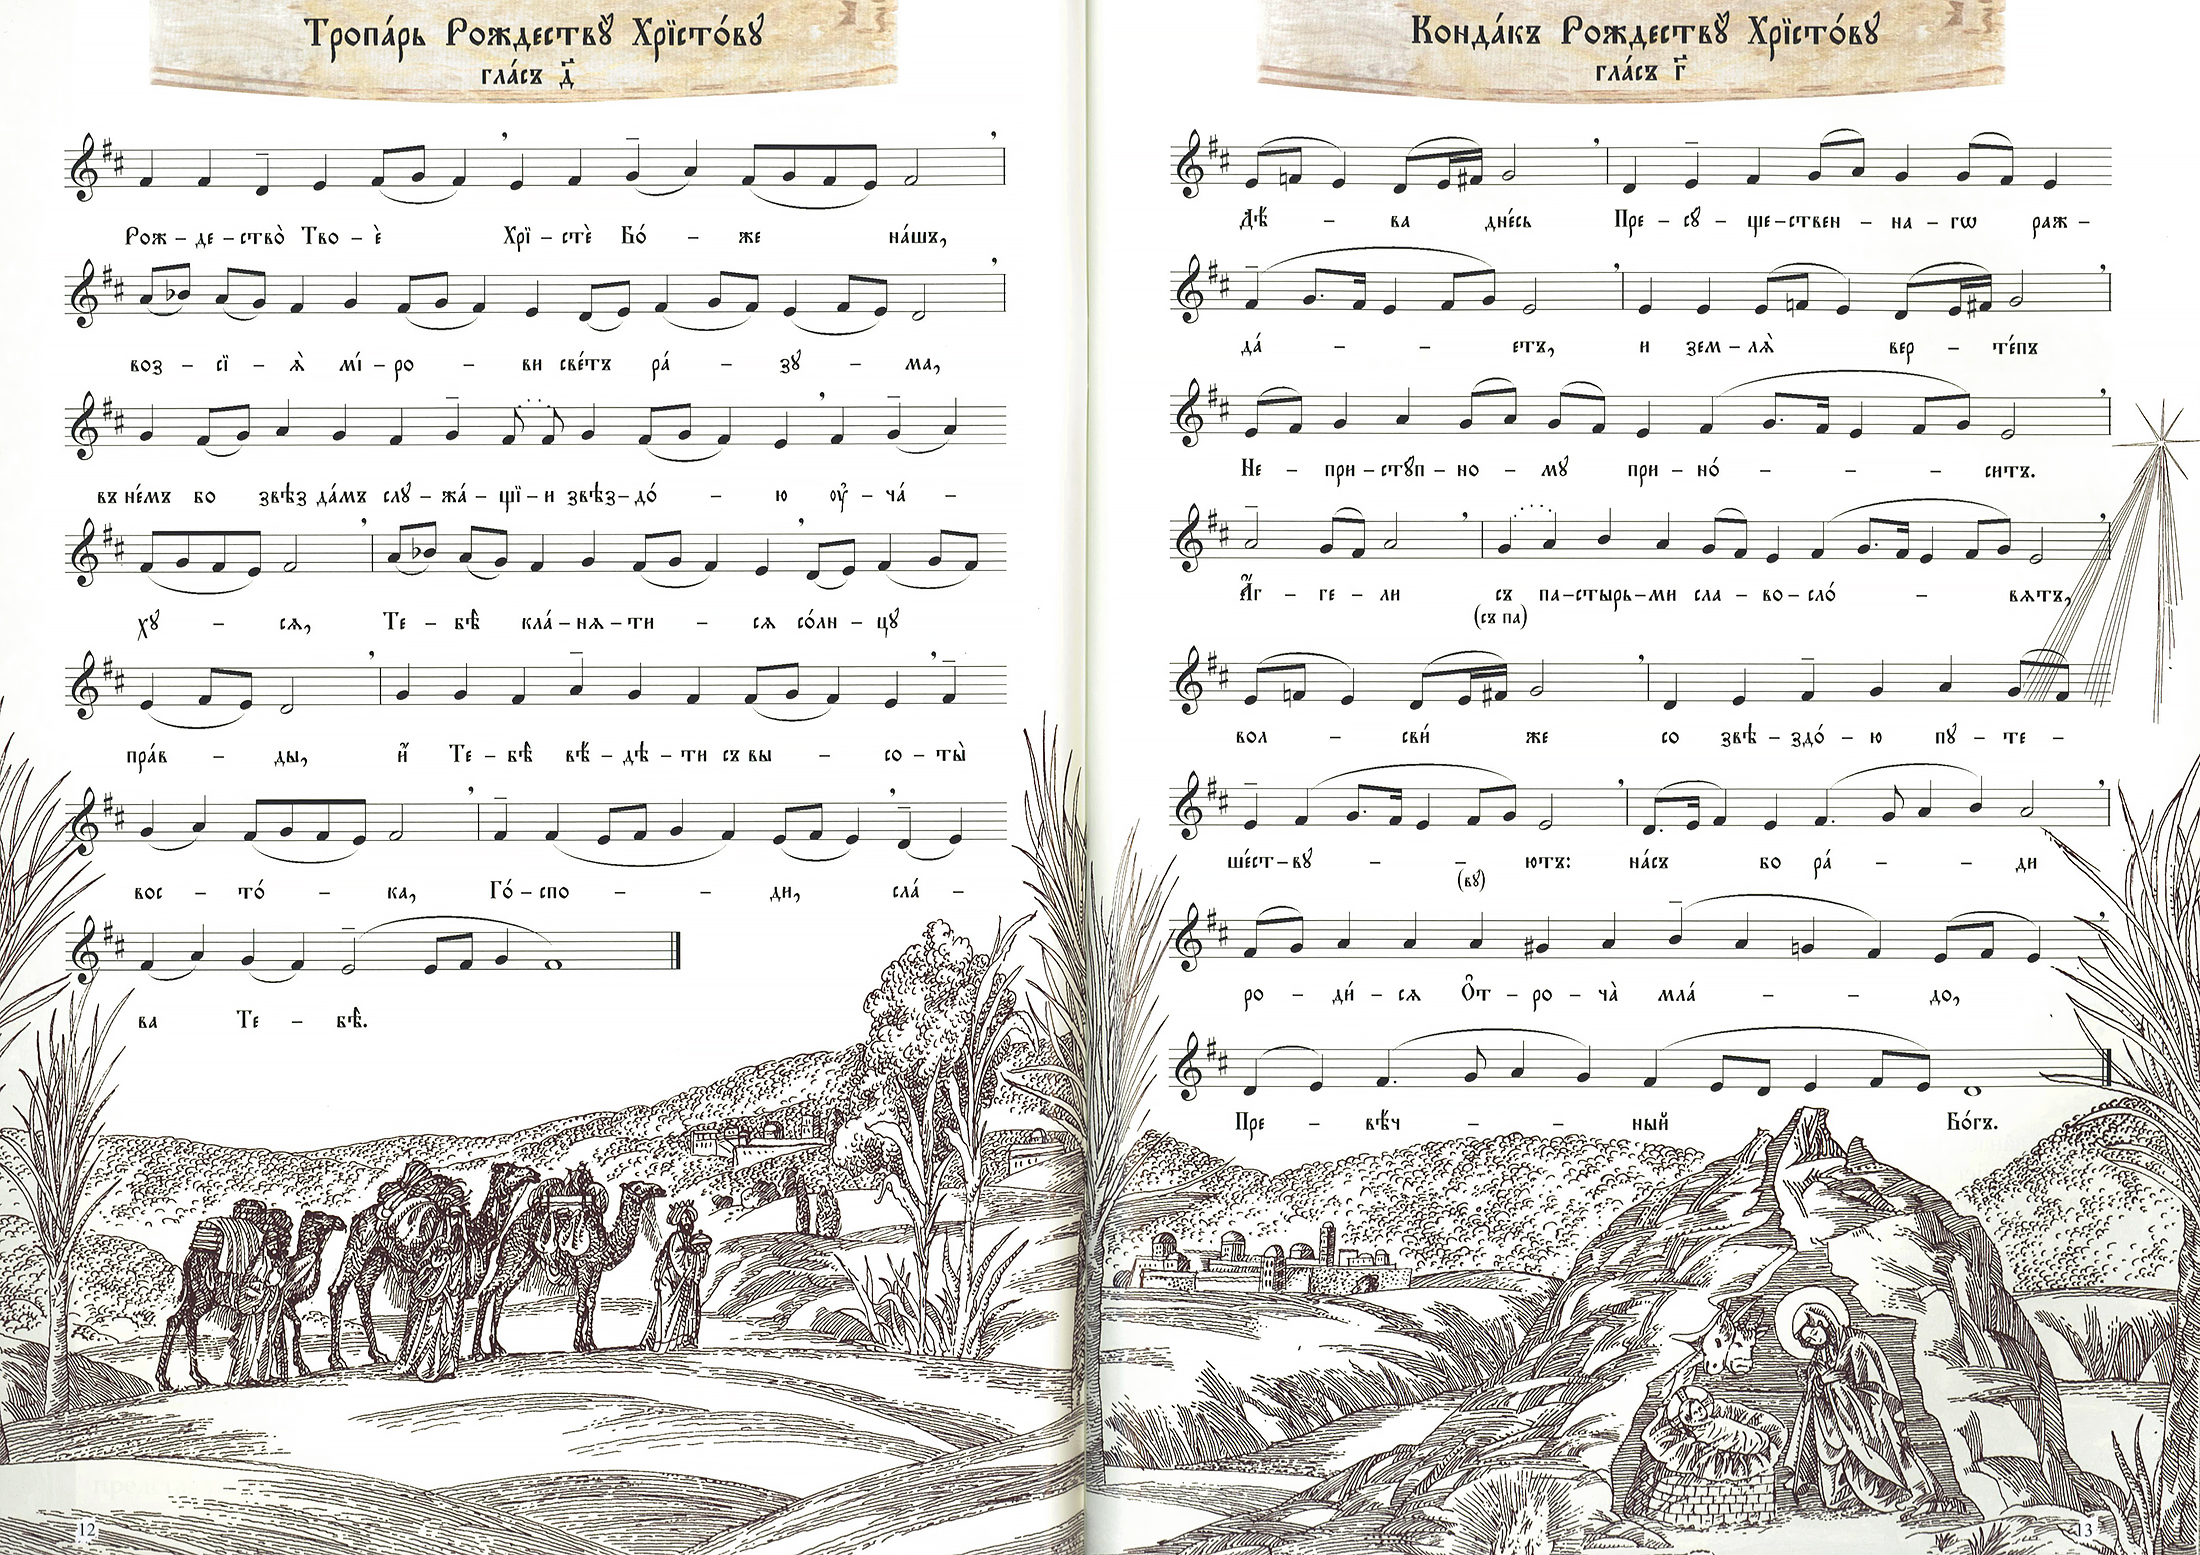 Тропа́рь Рождествꙋ̀ Хрїсто́вꙋ
гла́съ д҃
Рож – де – ство̀ Тво – ѐ Хрї – стѐ Бо́ – же на́шъ,
воз – сї – ѧ̀ мі́ – ро – ви све́тъ ра́ – зꙋ – ма,
въ не́мъ бо ѕвѣз да́мъ слꙋ – жа́ – щїи – и ѕвѣз – до́ – ю ᲂу҆ – ча́ –
хꙋ – сѧ,
Те – бѣ̀ кла́ – нѧ – ти – сѧ со́лн – цꙋ
пра́в – ды, и҆ Те – бѣ̀ вѣ́ – дѣ – ти съ вы – со – ты̀
вос – то́ – ка, Го́ – спо – ди, сла́ –
ва Те – бѣ̀.
12
Конда́къ Рождествꙋ̀ Хрїсто́вꙋ
гла́съ г҃
Дѣ́ – ва дне́сь Пре – сꙋ – ще – ствен – на – гѡ раж –
да́ – – етъ, и зем – лѧ̀ вер – те́пъ
Не – при – стꙋп – но – мꙋ при – но́ – – – ситъ.
А҆́г – ге – ли съ па – стырь – ми сла – во – сло́ – вѧтъ,
(съ па)
вол – сви́ же со ѕвѣ – здо́ – ю пꙋ – те –
ше́ст – вꙋ – – ютъ: на́съ бо ра́ – – ди
(вꙋ)
ро – ди́ – сѧ Ѻ҆т – ро – ча̀ мла́ – – до,
Пре – вѣ́ч – – – ный Бо́гъ.
13